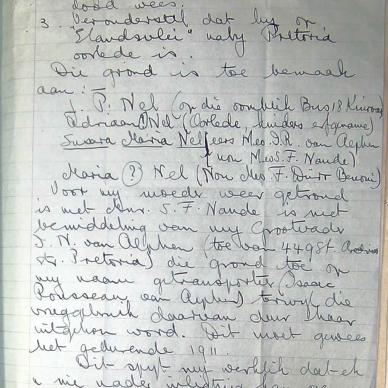 dood wees.
3. Veronderstel dat hy op
"Elandsvlei" naby Pretoria
oorlede is.
Die grond is toe bemaak
aan: - P. Nel (op die oomblik Bus 18 Kinross)
Adriaan Nel (Oorlede kinders erfgename)
Susara Maria Nel (eers Mev. I.R. van Alphen
nou Mev S. F. Naude)
Maria (?) Nel (Nou Mev. F. Durr Benoni)
Voor my moeder weer getroud
is met Mnr. S. F. Naude is met
bemiddeling van my Grootvader
J. N. van Alphen (toe van 449 St. Andries
Str. Pretoria) die grond toe op
my naam getransporteer (Isaac
Rousseau van Alphen) terwyl die
vruggebruik daarvan deur haar
uitgehou word. Dit moet gewees
het gedurende 1911.
Dit spyt my werklik dat ek
u nie nader inligting kan